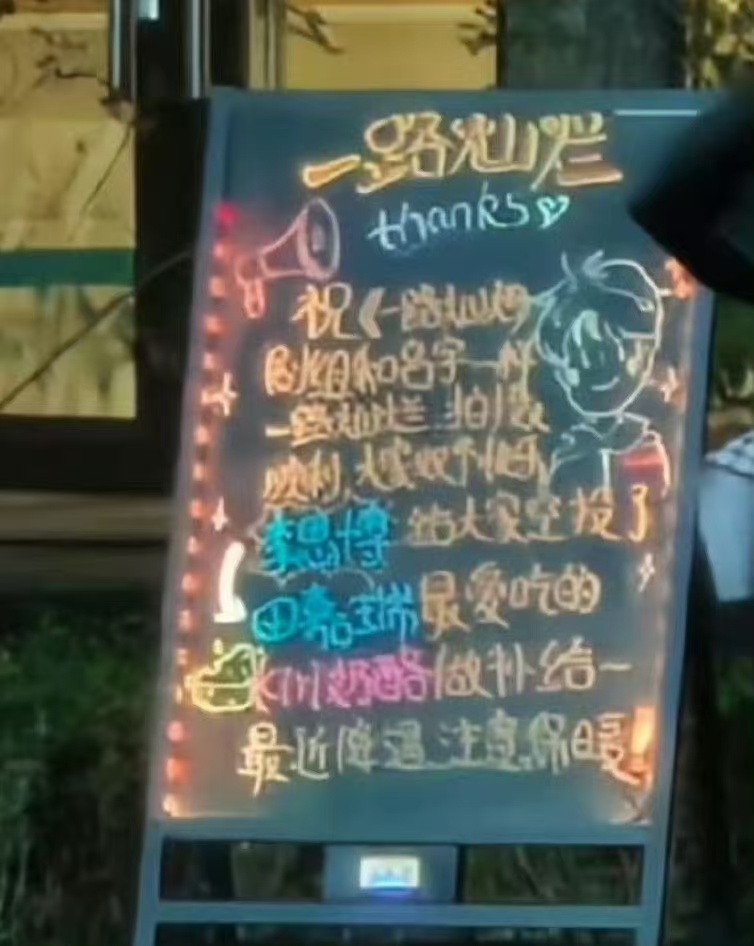 一路灿烂
thanks
祝《一路灿烂
剧组和名字一样
一路灿烂 拍摄
顺利,大家收个
李思博 给大家空投了
田嘉瑞 最爱吃的
奶酪做补给~
最近降温 注意保暖